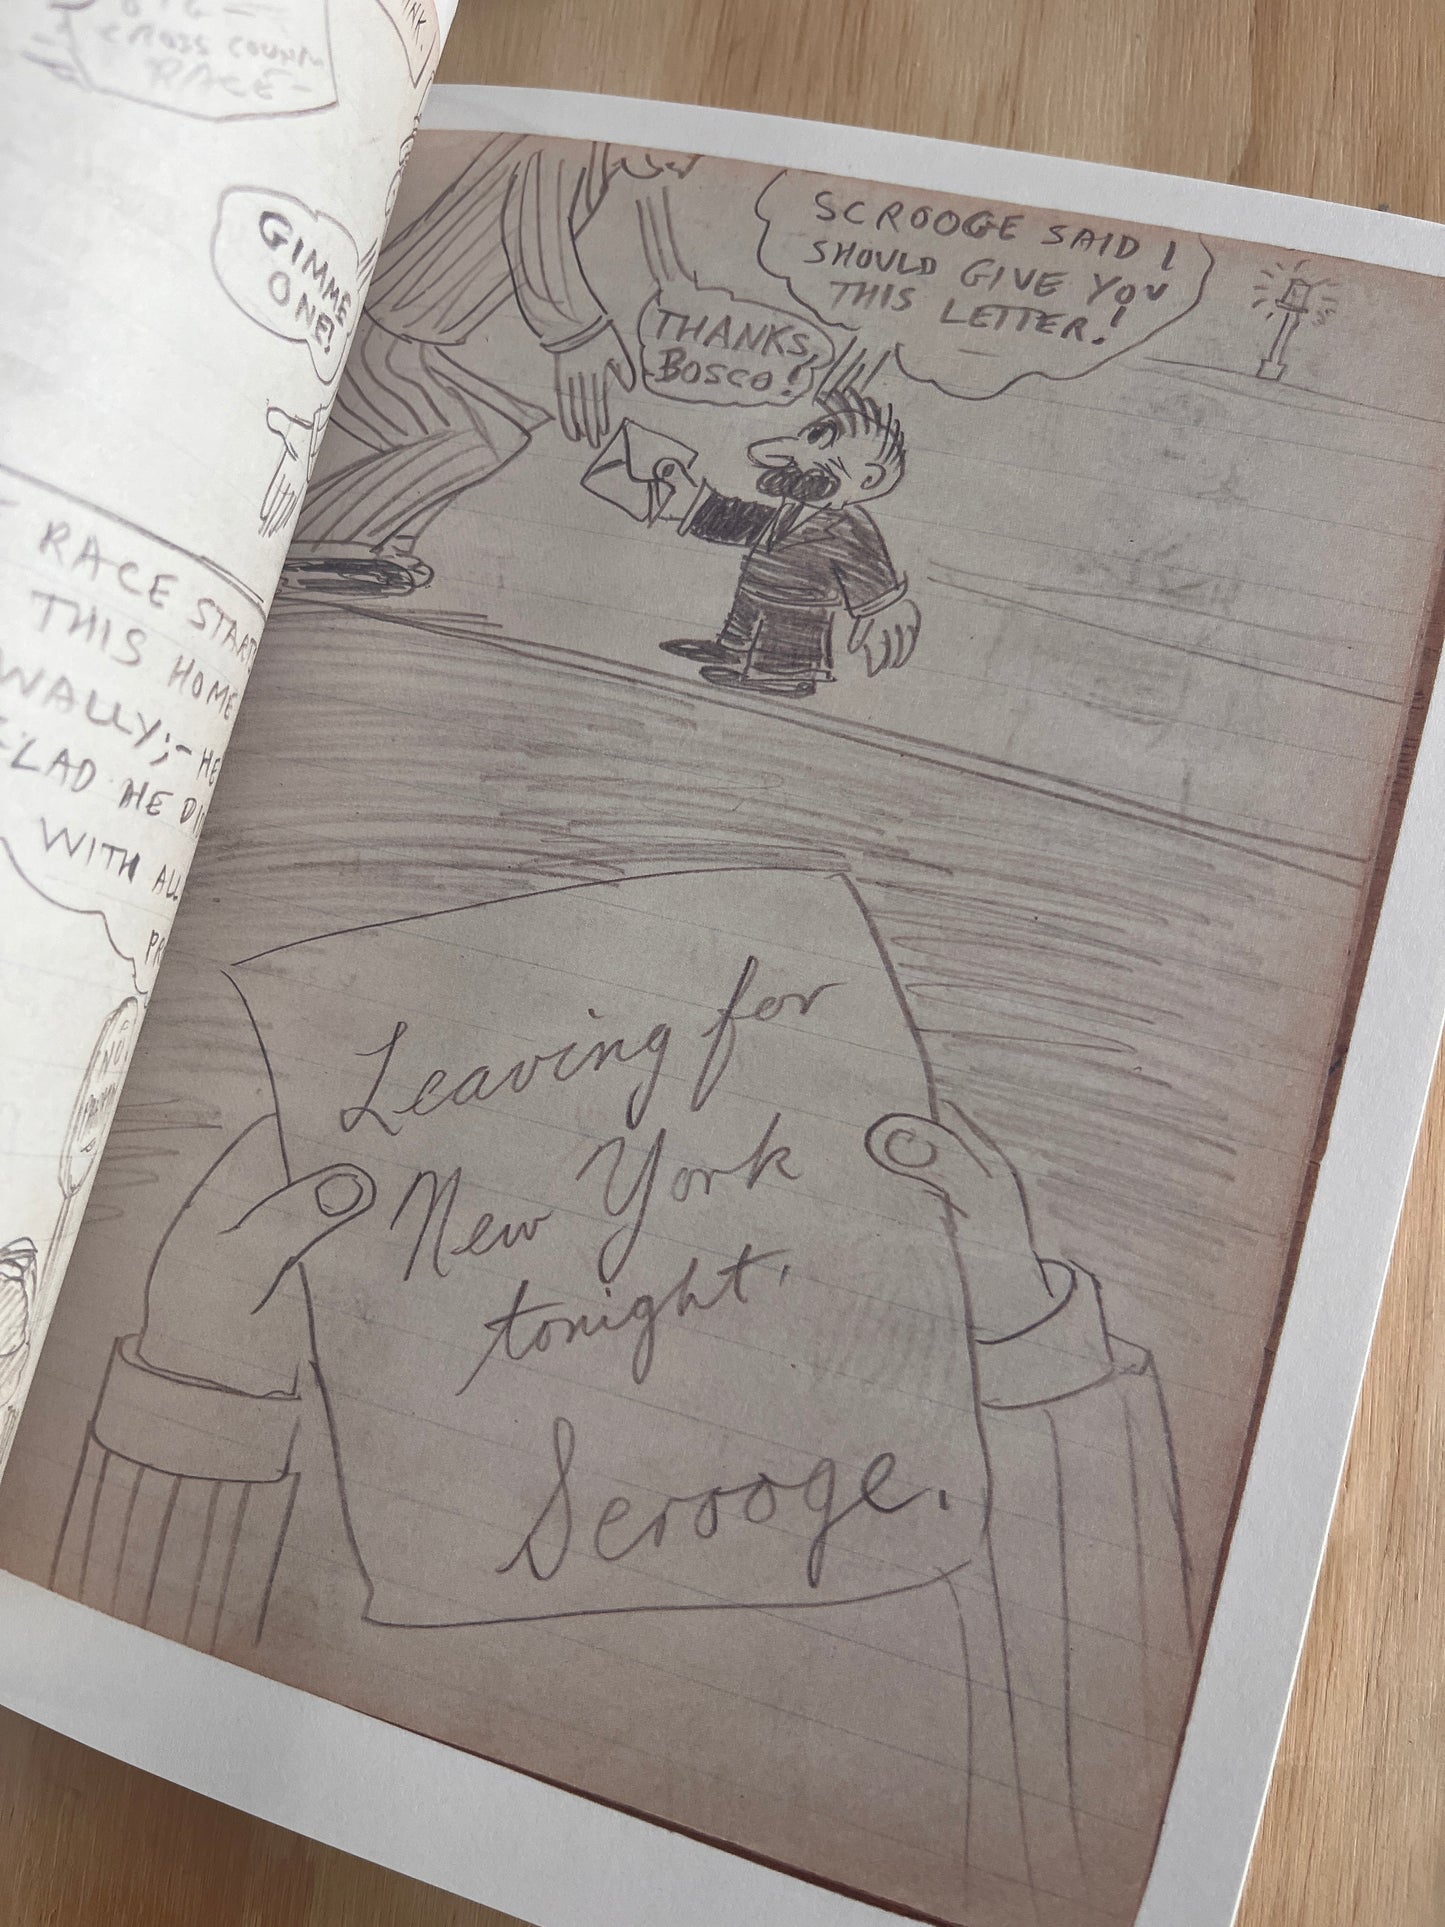 CROSS COUNTRY
RACE-
GIMME
ONE!
RACE START
THIS HOME
WALLY;- HE
GLAD HE DI
WITH ALL
PR
NO,
SCROOGE SAID I
SHOULD GIVE YOU
THIS LETTER!
THANKS,
BOSCO!
Leaving for
New York
tonight.
Scrooge.